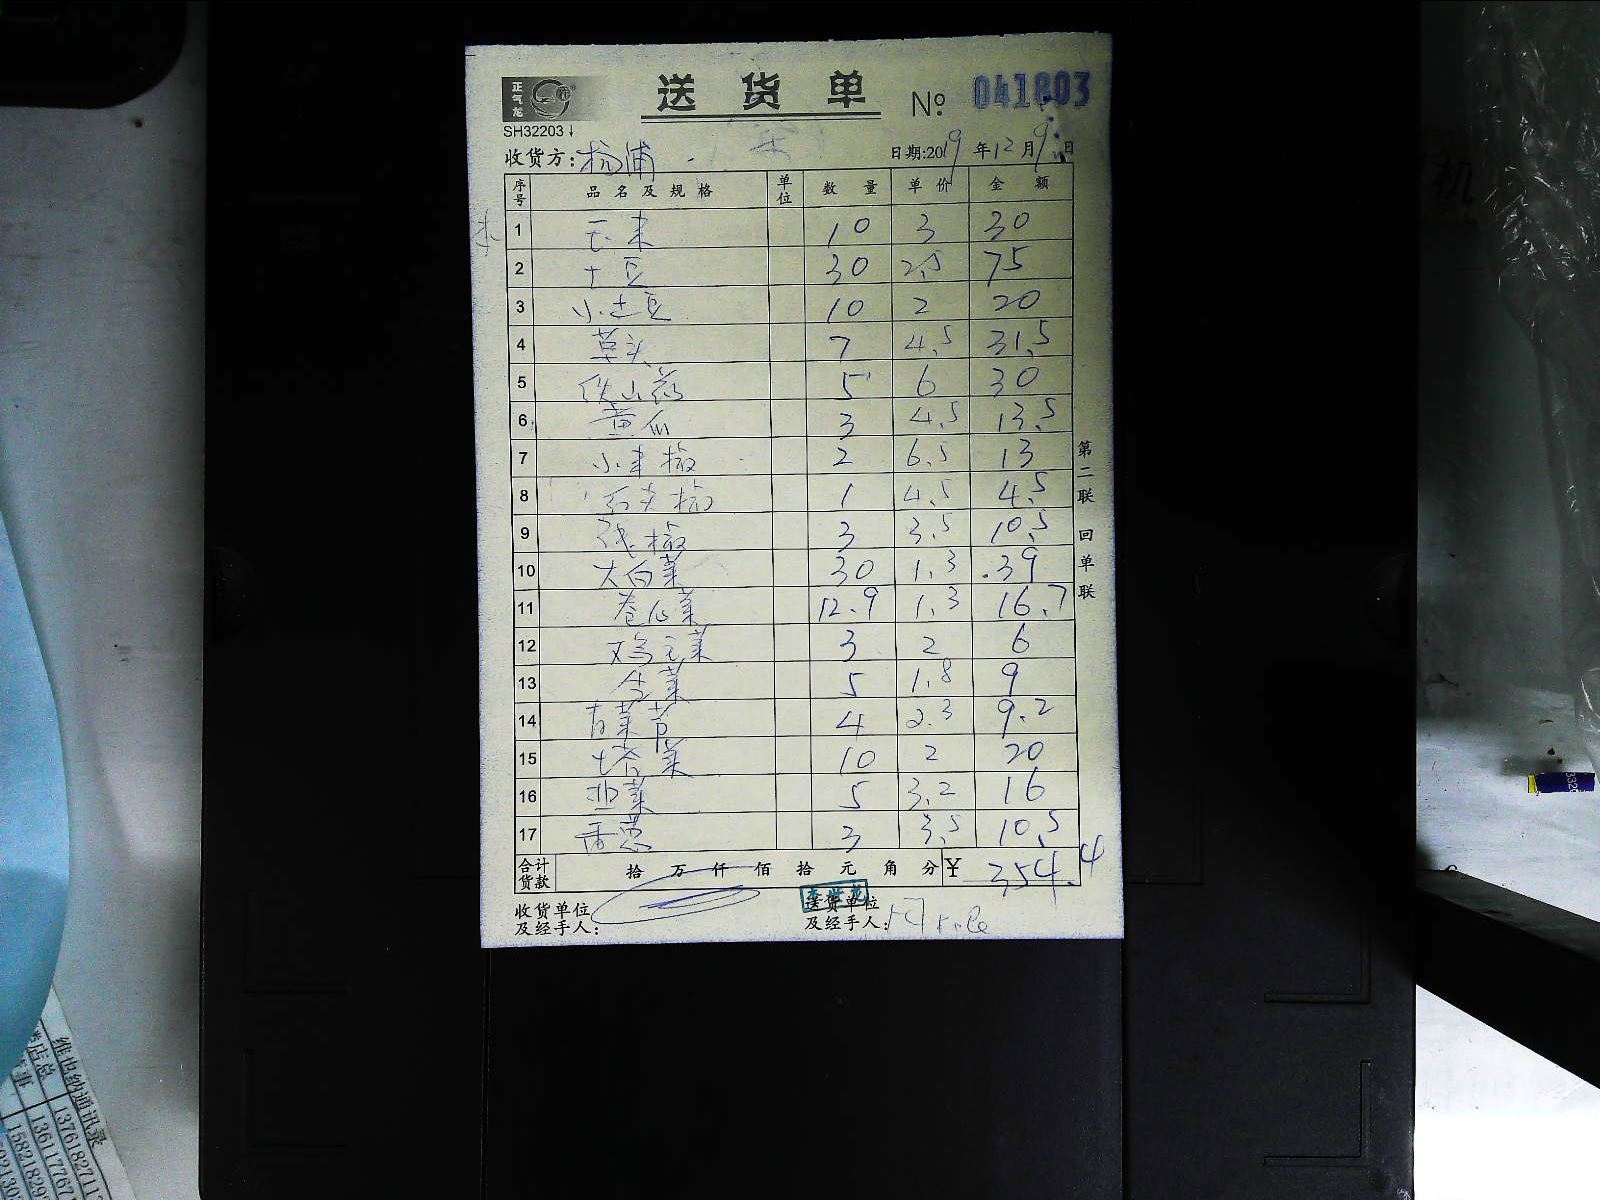 正气龙
送货单 № 041803
SH32203↓
收货方: 杨浦 日期:2019年12月9日
序号 品名及规格 单位 数量 单价 金额
1 玉米 10 3 30
2 土豆 30 2.5 75
3 小土豆 10 2 20
4 草头 7 4.5 31.5
5 铁山药 5 6 30
6 黄瓜 3 4.5 13.5
7 小米椒 2 6.5 13
8 1 4.5 4.5
9 椒 3 3.5 10.5
10 大白菜 30 1.3 39
11 卷心菜 12.9 1.3 16.7
12 鸡毛菜 3 2 6
13 生菜 5 1.8 9
14 青菜苔 4 2.3 9.2
15 塔菜 10 2 20
16 韭菜 5 3.2 16
17 香葱 3 3.5 10.5
合计货款 拾 万 仟 佰 拾 元 角 分 ¥ 354.4
收货单位及经手人: 送货单位及经手人:
第二联 回单联
机
维也纳通讯录
类店总 1376182711
136117767
15821829